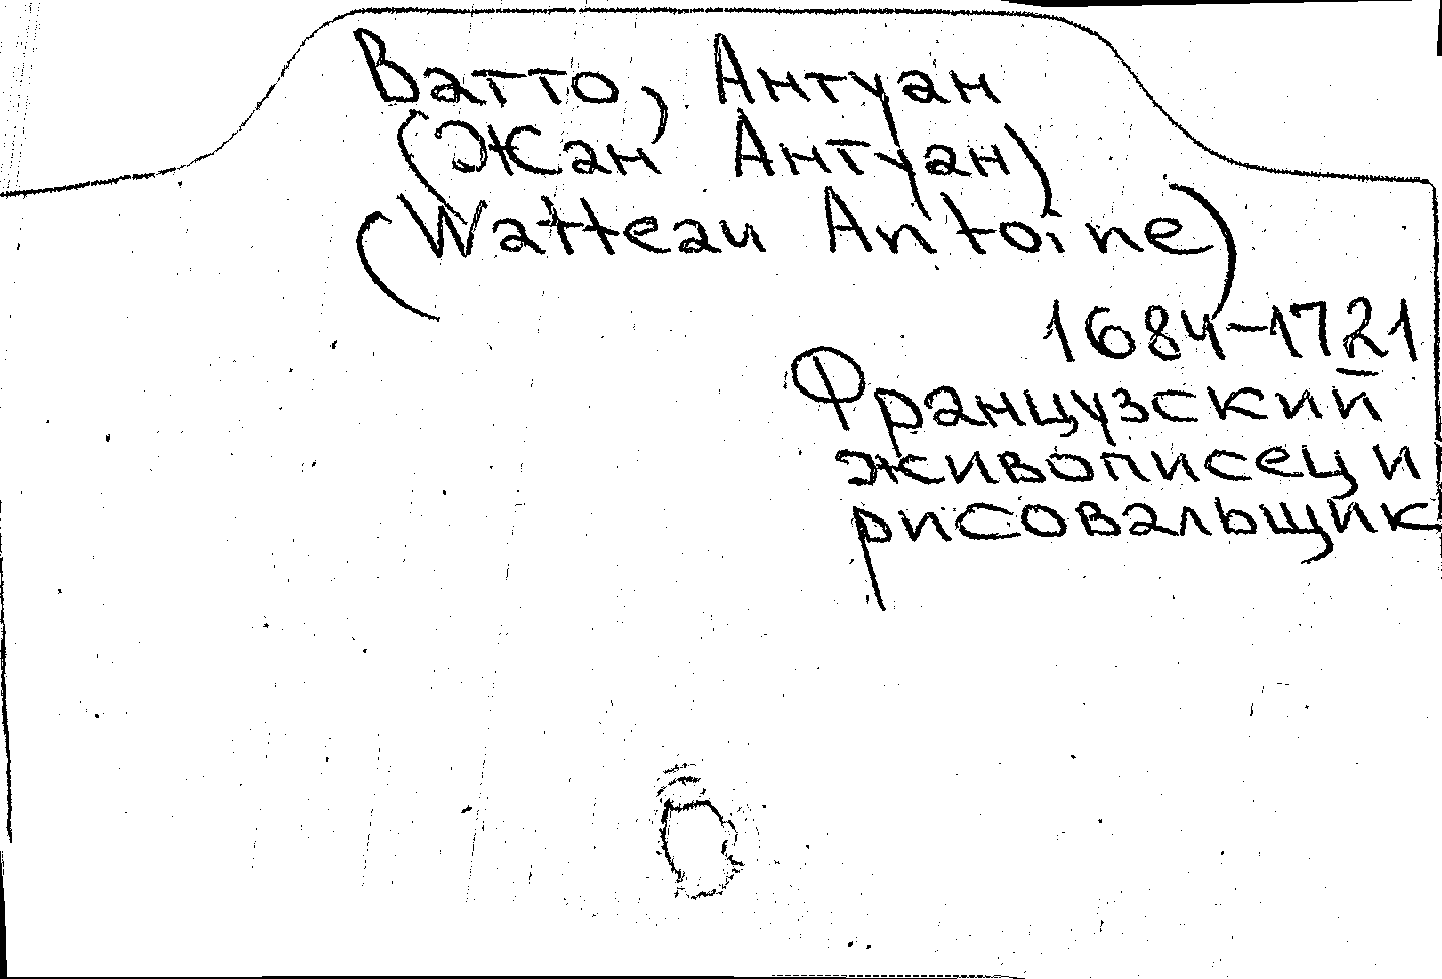 Ватто, Антуан
(Жан Антуан)
(Watteau Antoine)
1684-1721
Французский
живописец и
рисовальщик